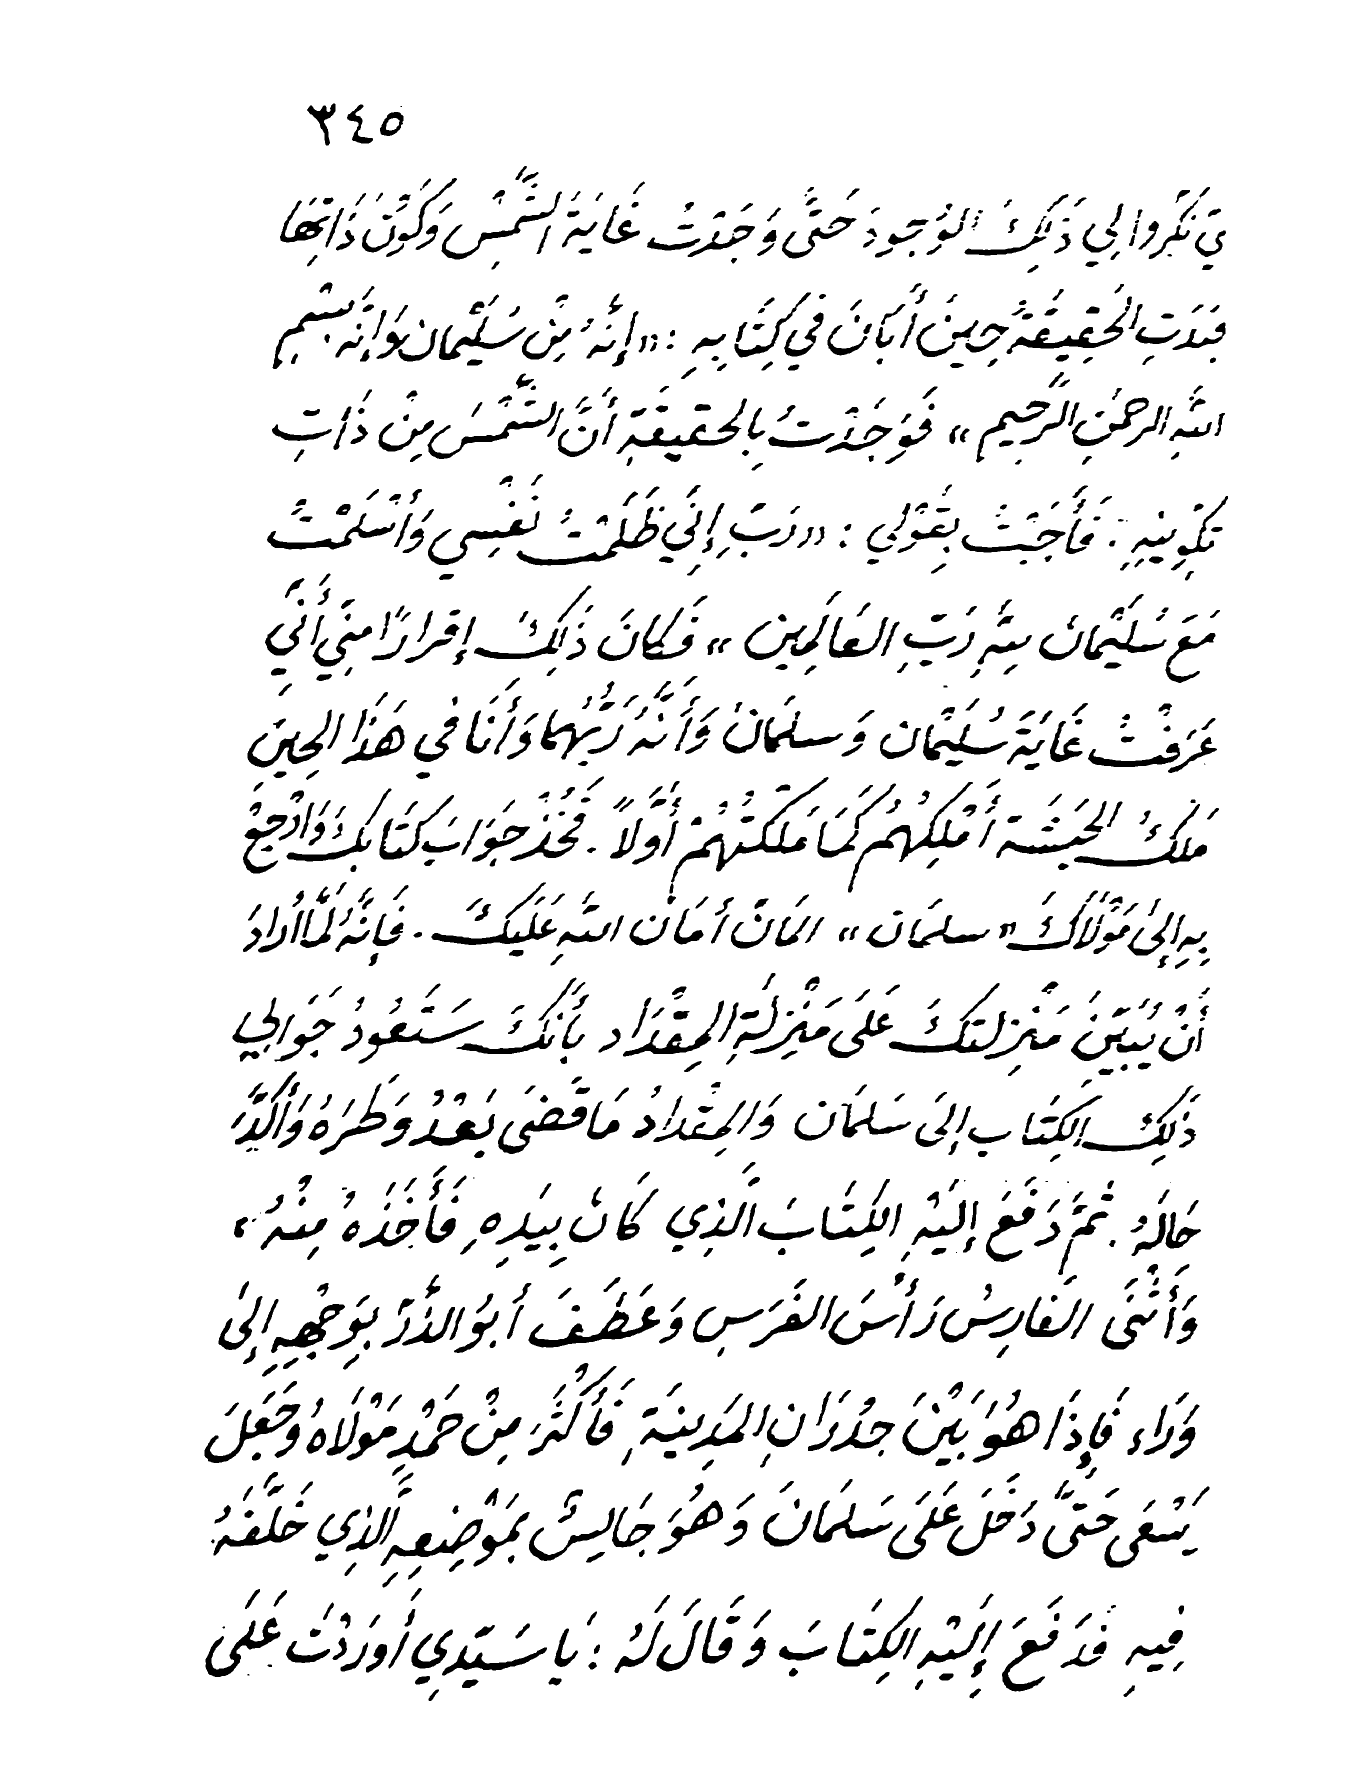 ٣٤٥
يَتَنَكَّرُوا لِي ذَلِكَ الوُجودَ حَتَّى وَجَدْتُ غَايَةَ الشَّمْسِ وَكَوْنَ ذَاتِهَا
فَبَدَتِ الحَقِيقَةُ حِينَ أَبَانَ فِي كِتَابِهِ : «إِنَّهُ مِنْ سُلَيْمان وَإِنَّه بِسْمِ
اللَّهِ الرحمنِ الرَّحِيمِ» فَوَجَدْتُ بِالحقِيقَةِ أَنَّ الشَّمْسَ مِنْ ذَاتِ
تَكْوِينِهِ . فَأَجَبْتُ بِقَوْلِي : «رَبِّ إِنِّي ظَلَمْتُ نَفْسِي وَأَسْلَمْتُ
مَعَ سُلَيْمَان لِلَّهِ رَبِّ العَالَمِين» فَكانَ ذَلِكَ إِقرارًا مِنِّي أَنَّنِي
عَرَفْتُ غَايَةَ سُلَيْمَان وَسلمَانَ وَأَنَّهُ رَبُّهُما وَأَنَا في هَذَا الحِينِ
مَلكُ الحَبَشَة أَمْلِكُهُمْ كَمَا مَلَكْتُهُمْ أَوَّلاً . فَخُذْ جَوَابَ كتَابكَ وَارْجِعْ
بِهِ إِلَىٰ مَوْلَاكَ «سلمَان» المَانّ أمَانْ اللَّهِ عَلَيكَ . فَإِنَّهُ لَمَّا أَرادَ
أَنْ يُبَيِّنَ مَنْزِلتكَ عَلَى مَنْزِلَةِ المِقْدَاد بأَنَّكَ سَتَعُودُ جَوَابِي
ذَلِكَ الكِتَاب إلَى سَلمَان وَالمِقْدادُ مَا قَضَى بَعْدُ وَطَرَهُ وَأَكَدَّ
حَالَهُ . ثمَّ دَفَعَ إِلَيْهِ الكِتَابَ الَّذِي كَانَ بِيَدِهِ فَأَخَذَهُ مِنْهُ ،
وَأَثْنَى الفَارِسُ رَأْسَ الفَرَسِ وَعَطَفَ أَبوُ الذَّرّ بِوَجْهِهِ إلىٰ
وَرَاء فَإِذَا هُوَ بَيْنَ جِدْرَانِ المَدِينَةِ فَأَكْثَرَ مِنْ حَمْدِ مَوْلَاهُ وَجَعَلَ
يَسْعَى حَتَّى دَخَلَ عَلَى سَلمَانَ وَهُوَ جَالِسٌ بمَوْضِعِهِ الَّذِي خَلَّفَهُ
فِيهِ فَدَفَعَ إِلَيْهِ الكِتَابَ وَقَالَ لَهُ : يَا سَيِّدِي أَورَدْتَ عَلَى